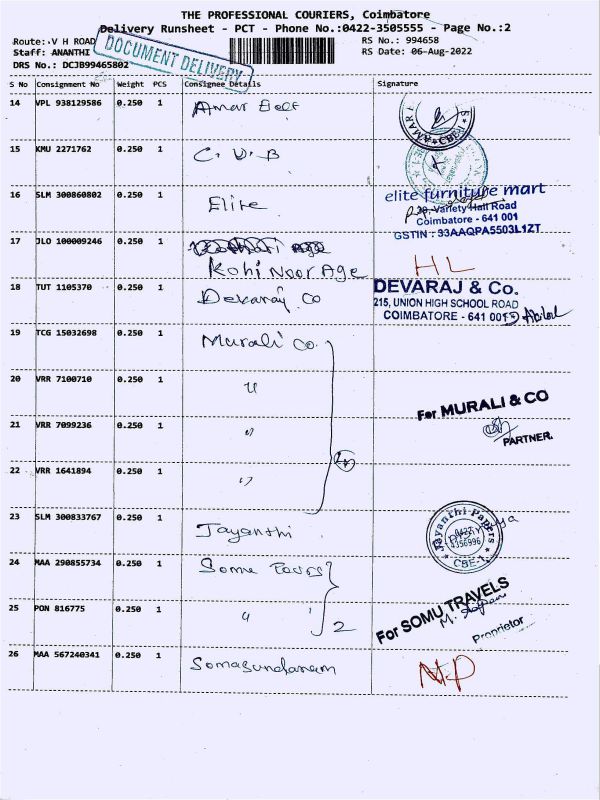 THE PROFESSIONAL COURIERS, Coimbatore
Delivery Runsheet - PCT - Phone No.:0422-3505555 - Page No.:2
Route: V H ROAD RS No.: 994658
Staff: ANANTHI RS Date: 06-Aug-2022
DRS No.: DCJB99465802
DOCUMENT DELIVERY
S No Consignment No Weight PCS Consignee Details Signature
14 VPL 938129586 0.250 1 Amar Belt
15 KMU 2271762 0.250 1 C. U. B
16 SLM 300860802 0.250 1 Elite
elite furniture mart
Variety Hall Road
Coimbatore - 641 001
GSTIN : 33AAQPA5503L1ZT
17 JLO 100009246 0.250 1 Kohi Noor Age HL
18 TUT 1105370 0.250 1 Devaraj Co
DEVARAJ & Co.
215, UNION HIGH SCHOOL ROAD
COIMBATORE - 641 001
19 TCG 15032698 0.250 1 Murali Co.
20 VRR 7100710 0.250 1 "
For MURALI & CO
21 VRR 7099236 0.250 1 "
PARTNER.
22 VRR 1641894 0.250 1 "
23 SLM 300833767 0.250 1 Jayanthi
Jayanthi Papers
CBE-1
24 MAA 290855734 0.250 1 Somu Tours
25 PON 816775 0.250 1 " 2
For SOMU TRAVELS
Proprietor
26 MAA 567240341 0.250 1 Somasundaram N.P